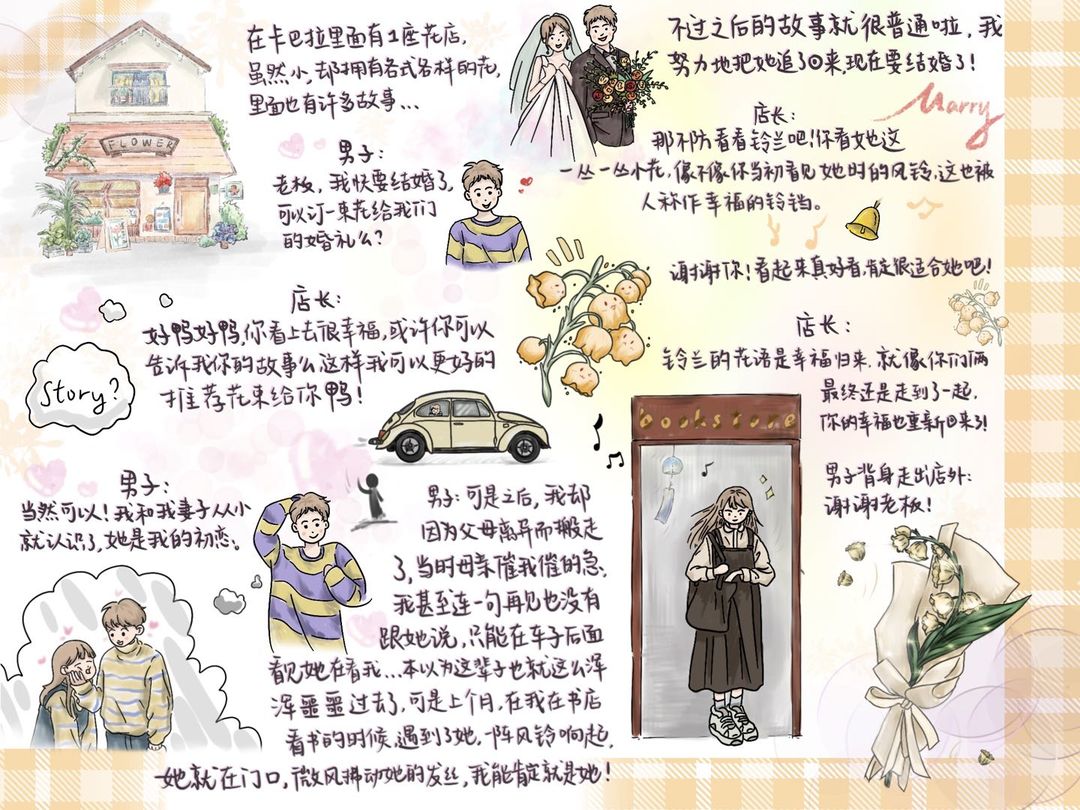 在卡巴拉里面有1座花店,
虽然小,却拥有各式各样的花,
里面也有许多故事...
FLOWER
男子:
老板,我快要结婚了,
可以订一束花给我们
的婚礼么?
店长:
好鸭好鸭,你看上去很幸福,或许你可以
告诉我你的故事么这样我可以更好的
推荐花束给你鸭!
story?
男子:
当然可以!我和我妻子从小
就认识了,她是我的初恋。
男子:可是之后,我却
因为父母离异而搬走
了,当时母亲催我催的急,
我甚至连一句再见也没有
跟她说,只能在车子后面
看见她在看我...本以为这辈子也就这么浑
浑噩噩过去了,可是上个月,在我在书店
看书的时候,遇到了她,一阵风铃响起,
她就在门口,微风拂动她的发丝,我能肯定就是她!
bookstore
不过之后的故事就很普通啦,我
努力地把她追了回来,现在要结婚了!
Marry
店长:
那不防看看铃兰吧!你看她这
一丛一丛小花,像不像你当初看见她时的风铃,这也被
人称作幸福的铃铛。
谢谢你!看起来真好看,肯定很适合她吧!
店长:
铃兰的花语是幸福归来,就像你们俩
最终还是走到了一起,
你的幸福也重新回来了!
男子背身走出店外:
谢谢老板!